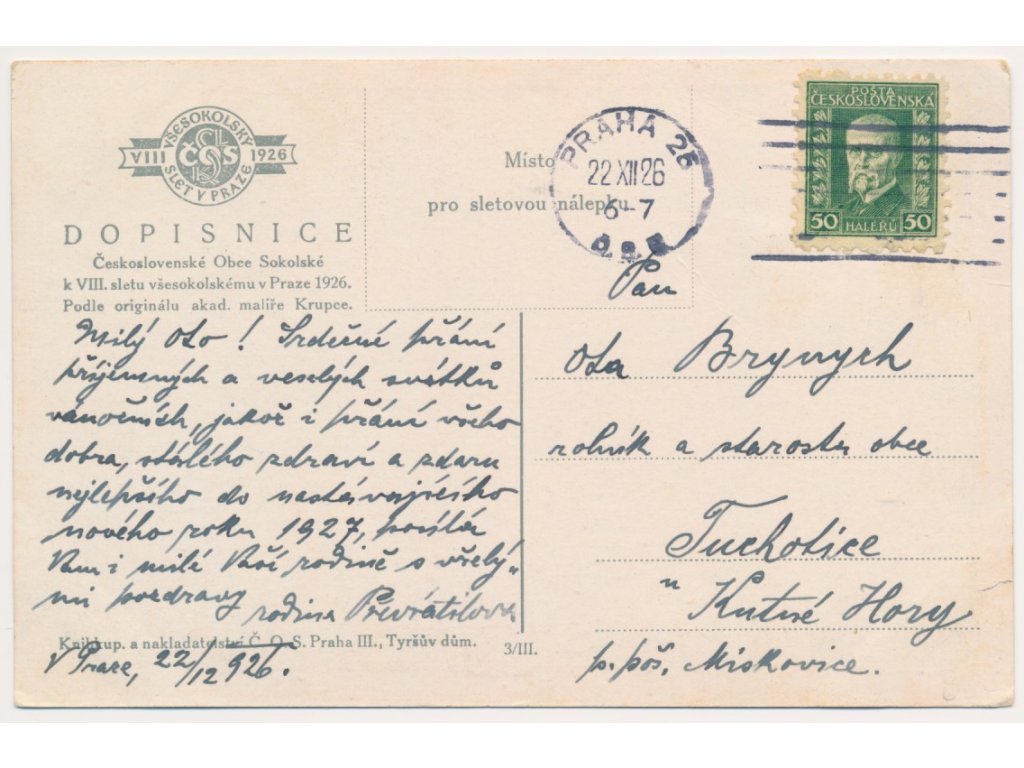 VŠESOKOLSKÝ
VIII ČOS 1926
SLET V PRAZE
DOPISNICE
Československé Obce Sokolské
k VIII. sletu všesokolskému v Praze 1926.
Podle originálu akad. malíře Krupce.
Místo
pro sletovou nálepku.
PRAHA 25
22 XII 26
6-7
POŠTA
ČESKOSLOVENSKÁ
50 HALÉŘŮ 50
Milý Oto! Srdečné přání
příjemných a veselých svátků
vánočních, jakož i přání všeho
dobra, stálého zdraví a zdaru
nejlepšího do nastávajícího
nového roku 1927, posílá
Vám i milé Vaší rodině s vřelý„
mi pozdravy
rodina Převrátilova
V Praze, 22/12 926.
Knihkup. a nakladatelství Č. O. S. Praha III., Tyršův dům.
3/III.
Pan
Ota Brynych
rolník a starosta obce
Tuchotice
u Kutné Hory
p. poš. Miskovice.